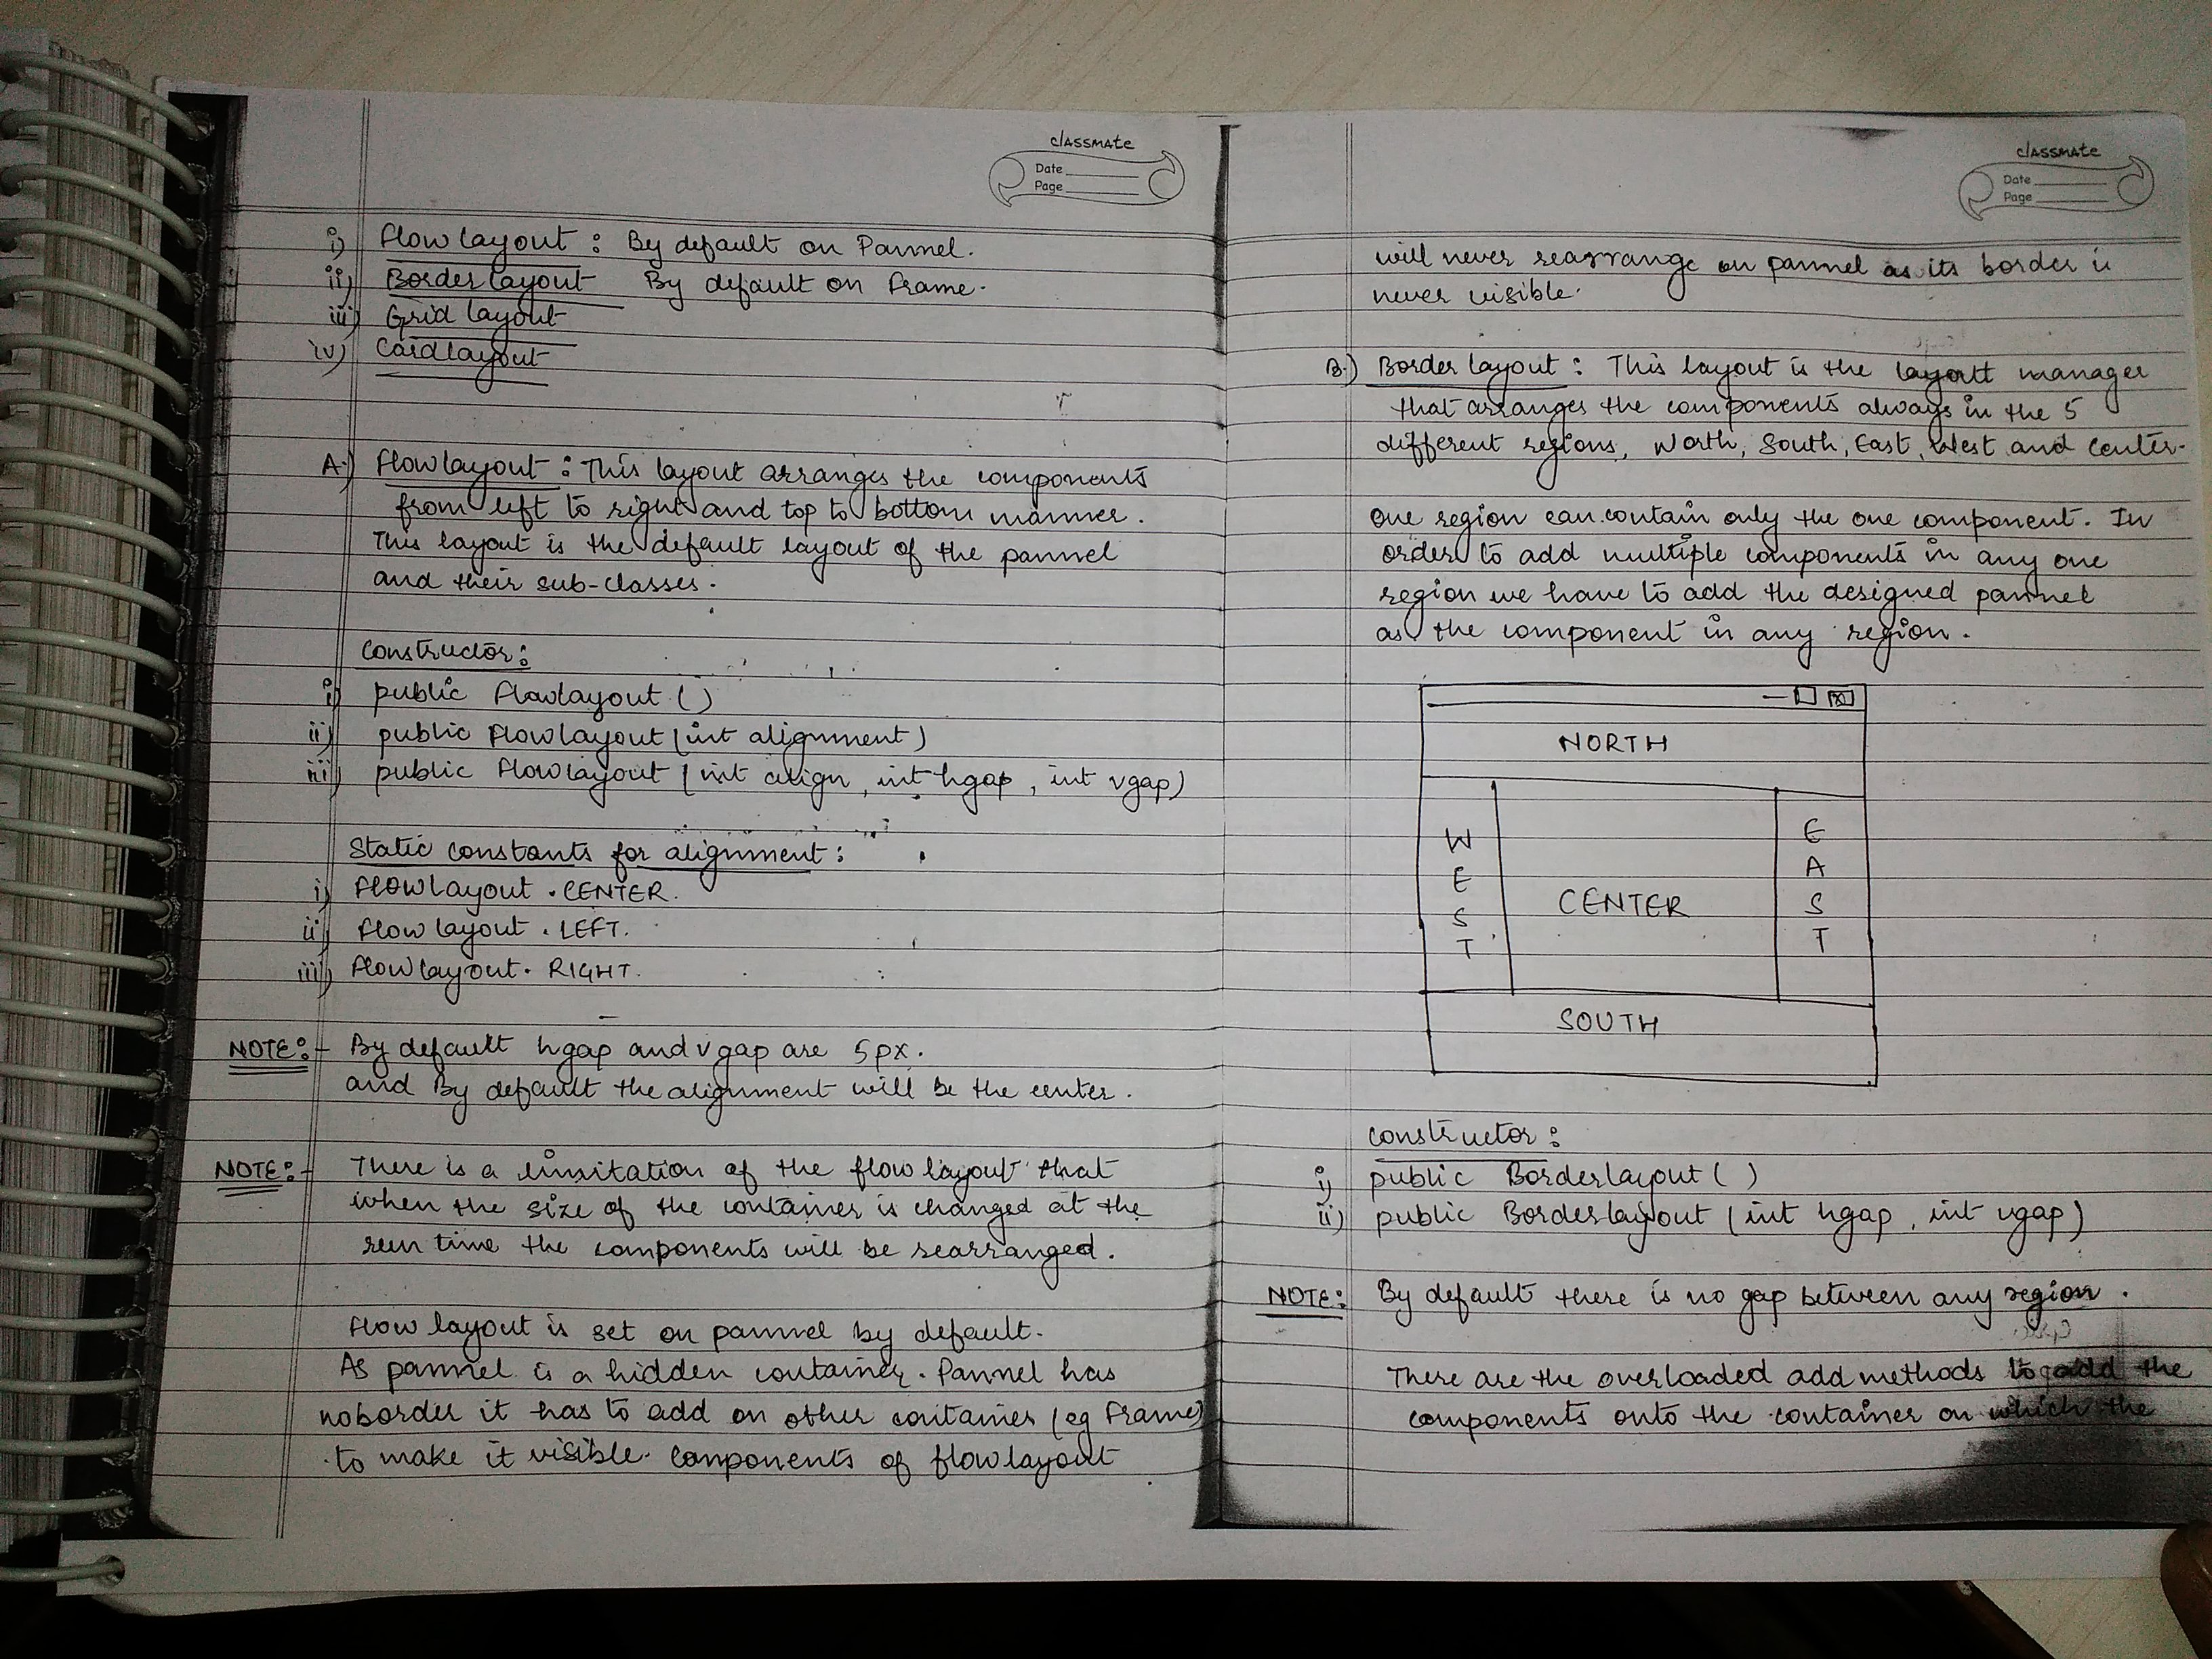 classmate
Date
Page
i) Flow layout : By default on Pannel.
ii) Border layout By default on Frame.
iii) Grid layout
iv) Cardlayout
A.) Flowlayout : This layout arranges the components
from left to right and top to bottom manner.
This layout is the default layout of the pannel
and their sub-classes.
Constructor:
i) public Flowlayout ( )
ii) public Flowlayout (int alignment)
iii) public Flowlayout (int align, int hgap, int vgap)
Static constants for alignment:
i) Flowlayout . CENTER.
ii) Flow layout . LEFT.
iii) Flowlayout . RIGHT.
NOTE:- By default hgap and vgap are 5px.
and By default the alignment will be the center.
NOTE:- There is a limitation of the flow layout that
when the size of the container is changed at the
run time the components will be rearranged.
Flow layout is set on pannel by default.
As pannel is a hidden container. Pannel has
noborder it has to add on other container (eg Frame)
to make it visible. Components of flowlayout
classmate
Date
Page
will never rearrange on pannel as its border is
never visible.
B.) Border layout : This layout is the layout manager
that arranges the components always in the 5
different regions, North, South, East, West and Center.
One region can contain only the one component. In
order to add multiple components in any one
region we have to add the designed pannel
as the component in any region.
NORTH
WEST
CENTER
EAST
SOUTH
Constructor:
i) public Borderlayout ( )
ii) public Borderlayout (int hgap, int vgap)
NOTE: By default there is no gap between any region.
There are the overloaded add methods to add the
components onto the container on which the